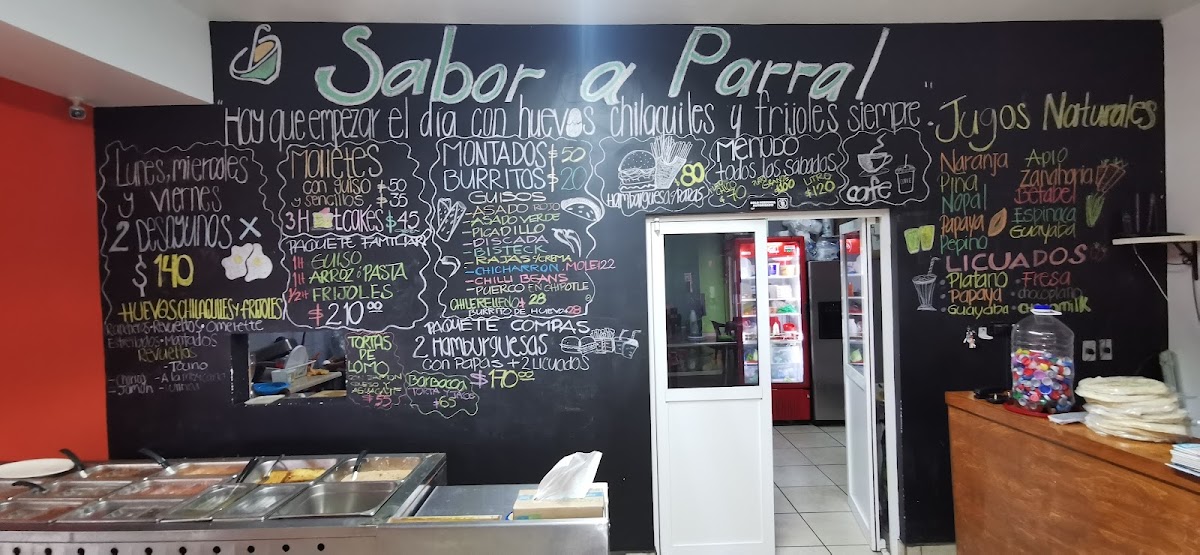 Sabor a Parral
"Hay que empezar el día con huevos chilaquiles y frijoles siempre."
Lunes, miercoles
y viernes
2 Desayunos X
$140
HUEVOS, CHILAQUILES Y FRIJOLES
Rancheros • Revueltos • Omelette
Estrellados • Montados
Revueltos
- Tocino
- Chorizo - A la mexicana
- Jamón
MOLLETES
con guiso $50
y sencillos $35
3 Hotcakes $45
PAQUETE FAMILIAR
1lt GUISO
1lt ARROZ ó PASTA
1/2lt FRIJOLES
$210.00
MONTADOS $50
BURRITOS $20
GUISOS
- ASADO ROJO
- ASADO VERDE
- PICADILLO
- DISCADA
- BISTECK
- RAJAS C/CREMA
- CHICHARRON - MOLE $22
- CHILI BEANS
- PUERCO EN CHIPOTLE
CHILE RELLENO $28
BURRITO DE HUEVO $28
PAQUETE COMPAS
2 Hamburguesas
CON PAPAS + 2 LICUADOS
$170.00
TORTAS
DE
LOMO
AGUACATE
$55
Barbacoa
TORTA TACOS
$65
$80
Hamburguesa/Papas
MENUDO
todos los sabados
$70
$100
LITRO
$120
café
Jugos Naturales
Naranja
Piña
Nopal
Papaya
Pepino
Apio
Zanahoria
Betabel
Espinaca
Guayaba
LICUADOS
• Platano
• Papaya
• Guayaba
• Fresa
• chocomilk